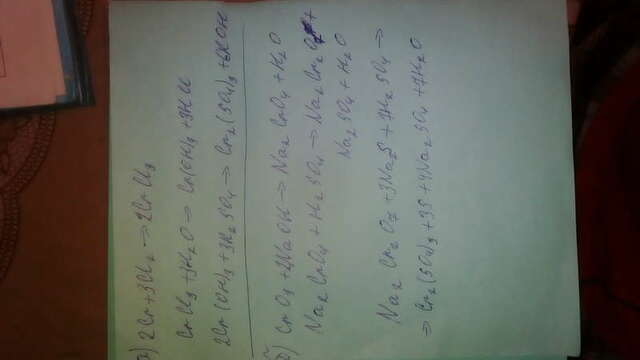 а) 2Cr+3Cl₂ → 2CrCl₃
CrCl₃ +3H₂O → Cr(OH)₃ +3HCl
2Cr(OH)₃ +3H₂SO₄ → Cr₂(SO₄)₃ +6HOH
б) CrO₃ +2NaOH → Na₂CrO₄ + H₂O
Na₂CrO₄ + H₂SO₄ → Na₂Cr₂O₇ +
Na₂SO₄ + H₂O
Na₂Cr₂O₇ +3Na₂S +7H₂SO₄ →
→ Cr₂(SO₄)₃ +3S +4Na₂SO₄ +7H₂O